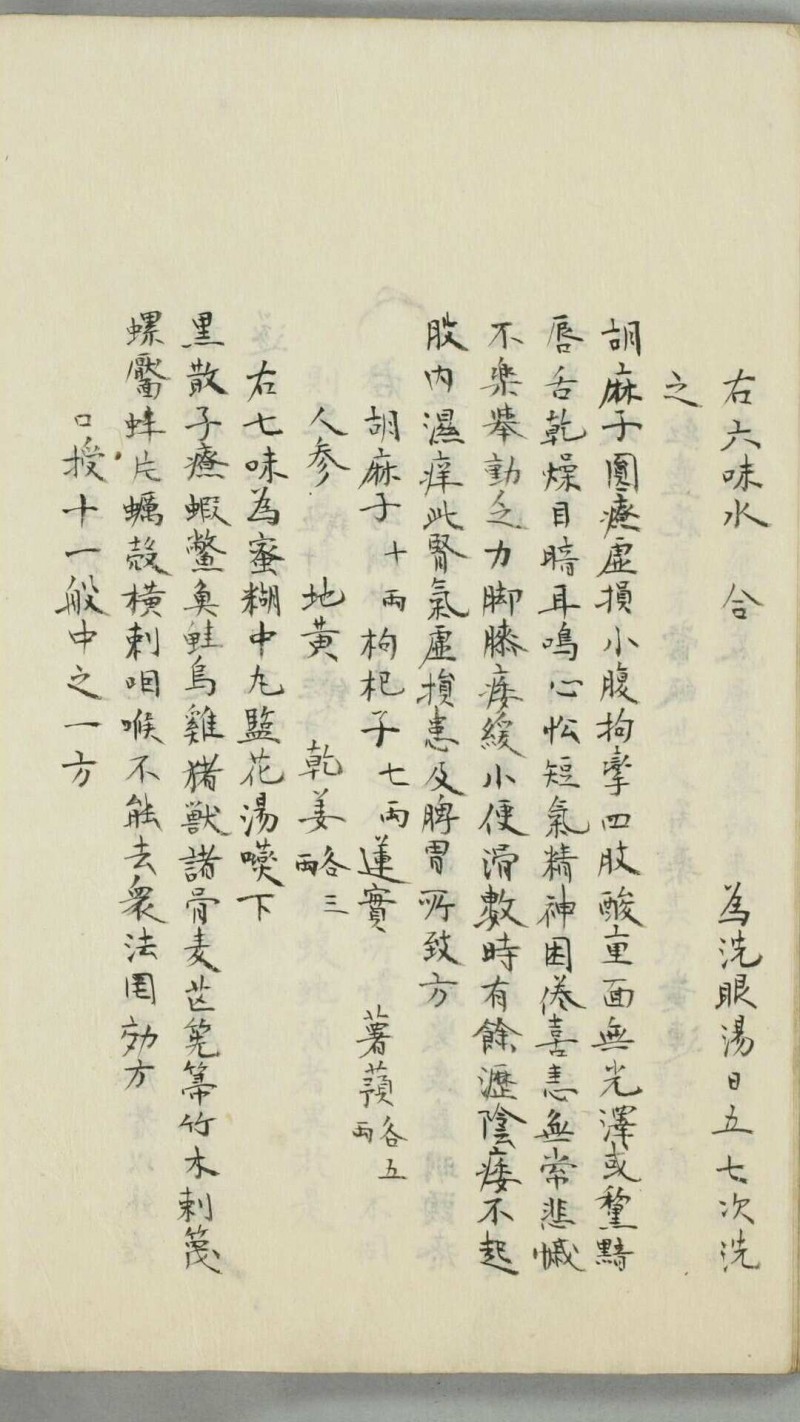 右六味水　合　　　為洗眼湯日五七次洗
之
胡麻子圓療虛損小腹拘攣四肢酸重面無光澤或黧黯
唇舌乾燥目暗耳鳴心忪短氣精神困倦喜恚無常悲慽
不樂舉動乏力脚膝痿緩小便滑數時有餘瀝陰痿不起
股内濕痒此腎氣虛損恚及脾胃所致方
胡麻子十兩枸杞子七兩蓮實　薯蕷各五兩
人参　地黄　乾姜各三兩
右七味為蜜糊中丸監花湯嚥下
黒散子療蝦鱉魚蛙烏雞猪獸諸骨麦芒箒竹木刺篾
螺靨蚌片蠣殼横刺咽喉不能去衆法困効方
口授十一般中之一方